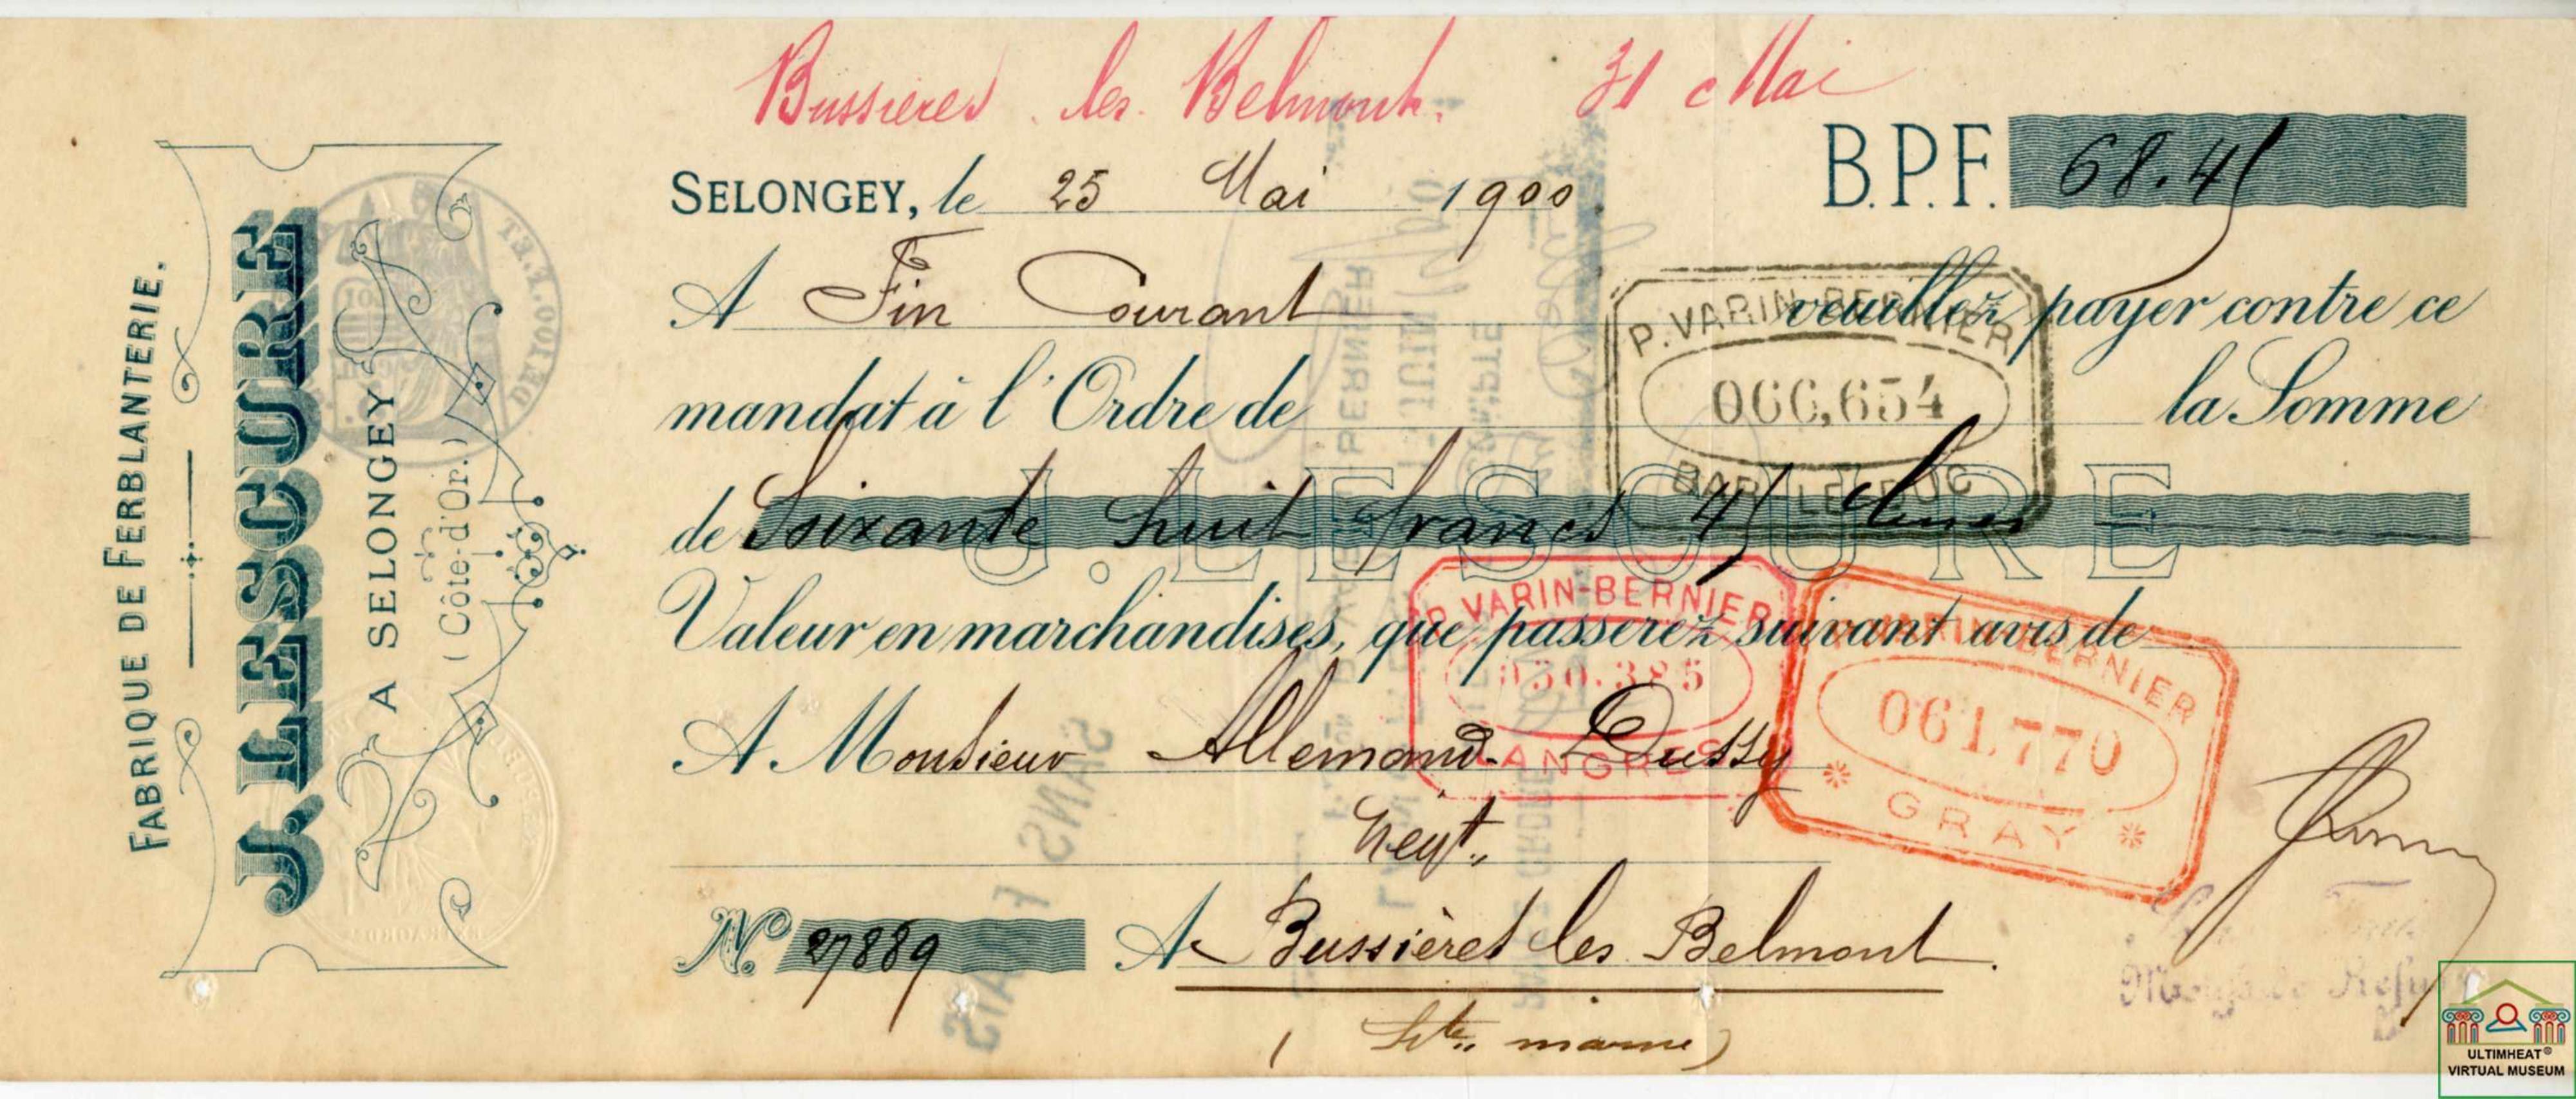 Bussieres les Belmont. 31 Mai
FABRIQUE DE FERBLANTERIE.
J. LESCURE
A SELONGEY
(Côte-d'Or.)
SELONGEY, le 25 Mai 1900
B.P.F. 68.45
A Fin Courant veuillez payer contre ce
mandat à l'Ordre de la Somme
de Soixante huit francs 45
J. LESCURE
Valeur en marchandises, que passerez suivant avis de
A Monsieur Allemand-Dussy
Negt.
No 27889 A Bussières les Belmont.
(Hte. marne)
P. VARIN-BERNIER
066,654
BAR-LE-DUC
P. VARIN-BERNIER
LANGRES
VARIN-BERNIER
061.770
GRAY
SANS FRAIS
ULTIMHEAT®
VIRTUAL MUSEUM